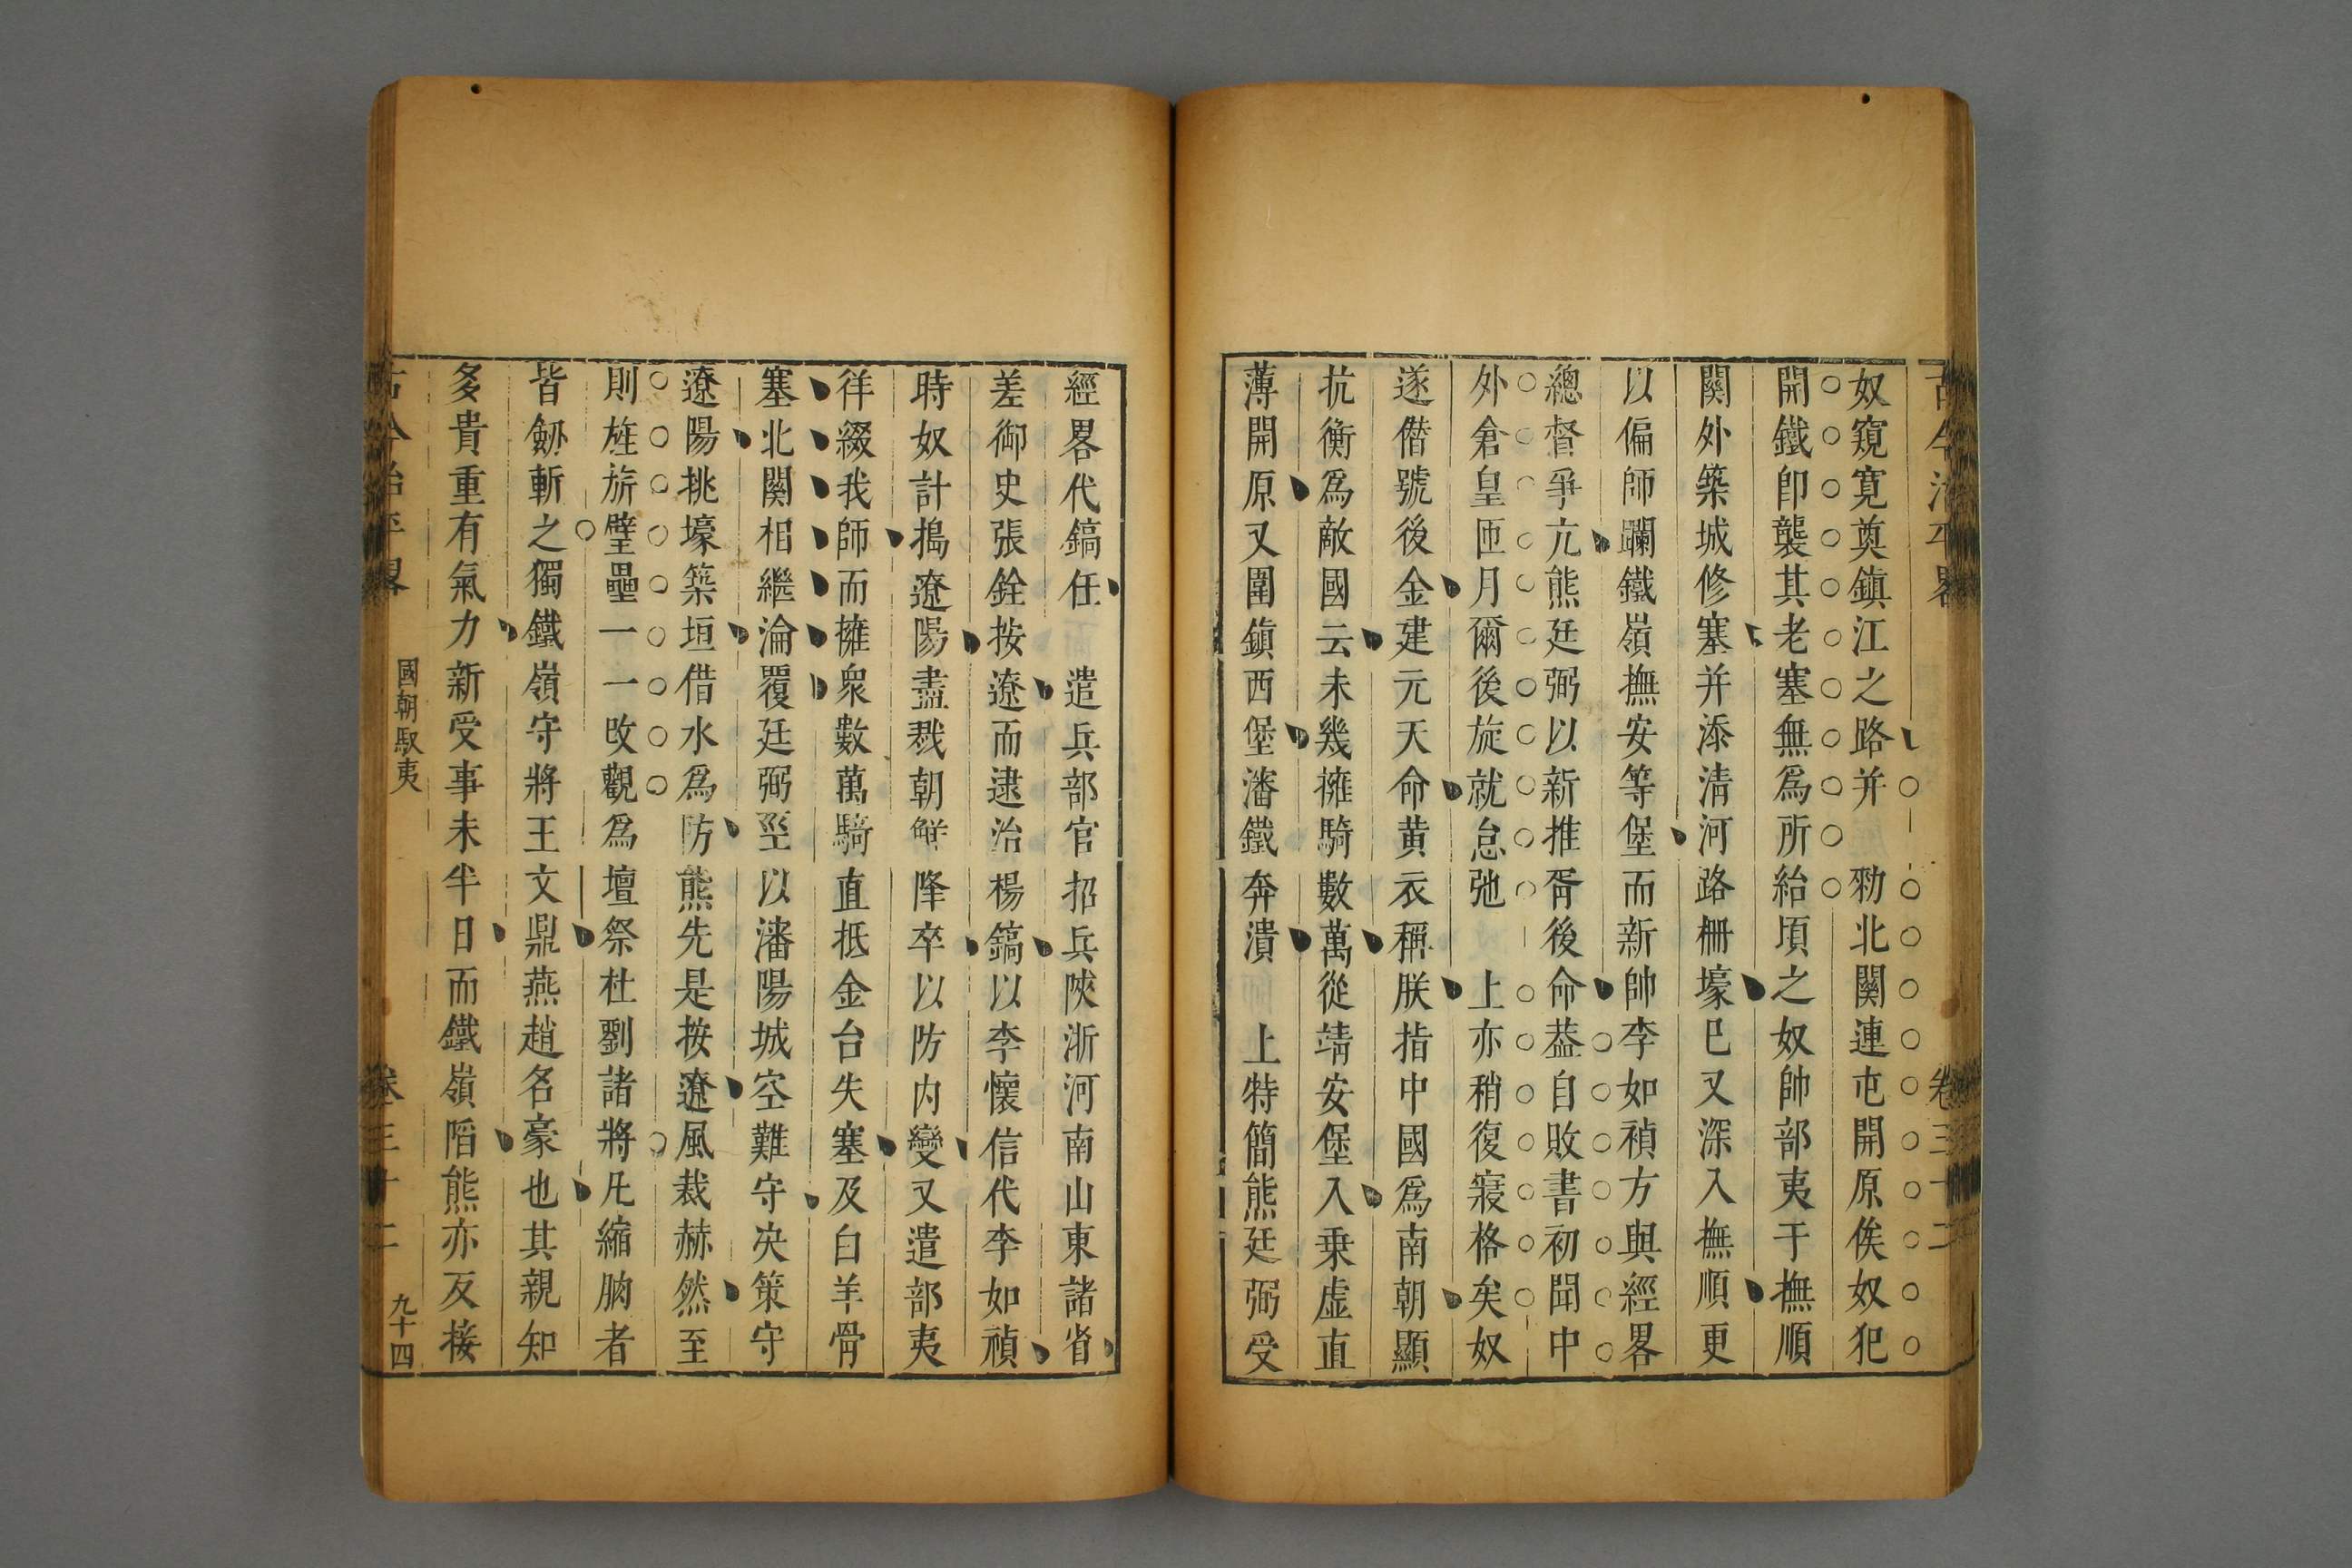 古今治平畧 卷三十二
奴窺寬奠鎮江之路并 勑北關連屯開原俟奴犯
開鐵卽襲其老塞無爲所紿頃之奴帥部夷于撫順
關外築城修塞并添淸河路柵壕已又深入撫順更
以偏師躪鐵嶺撫安等堡而新帥李如禎方與經畧
總督爭亢熊廷弼以新推胥後命葢自敗書初聞中
外倉皇匝月爾後旋就怠弛 上亦稍復寢格矣奴
遂僣號後金建元天命黃衣稱朕指中國爲南朝顯
抗衡爲敵國云未幾擁騎數萬從靖安堡入乗虚直
薄開原又圍鎭西堡瀋鐵奔潰 上特簡熊廷弼受
經畧代鎬任 遣兵部官招兵陝浙河南山東諸省
差御史張銓按遼而逮治楊鎬以李懷信代李如禎
時奴計搗遼陽盡戮朝鮮降卒以防內變又遣部夷
徉綴我師而擁衆數萬騎直抵金台失塞及白羊骨
塞北關相繼淪覆廷弼至以瀋陽城空難守决策守
遼陽挑壕築垣借水爲防熊先是按遼風裁赫然至
則旌旂壁壘一一改觀爲壇祭杜劉諸將凡縮朒者
皆劒斬之獨鐵嶺守將王文鼎燕趙名豪也其親知
多貴重有氣力新受事未半日而鐵嶺陷熊亦反接
古今治平畧 國朝馭夷 卷三十二 九十四